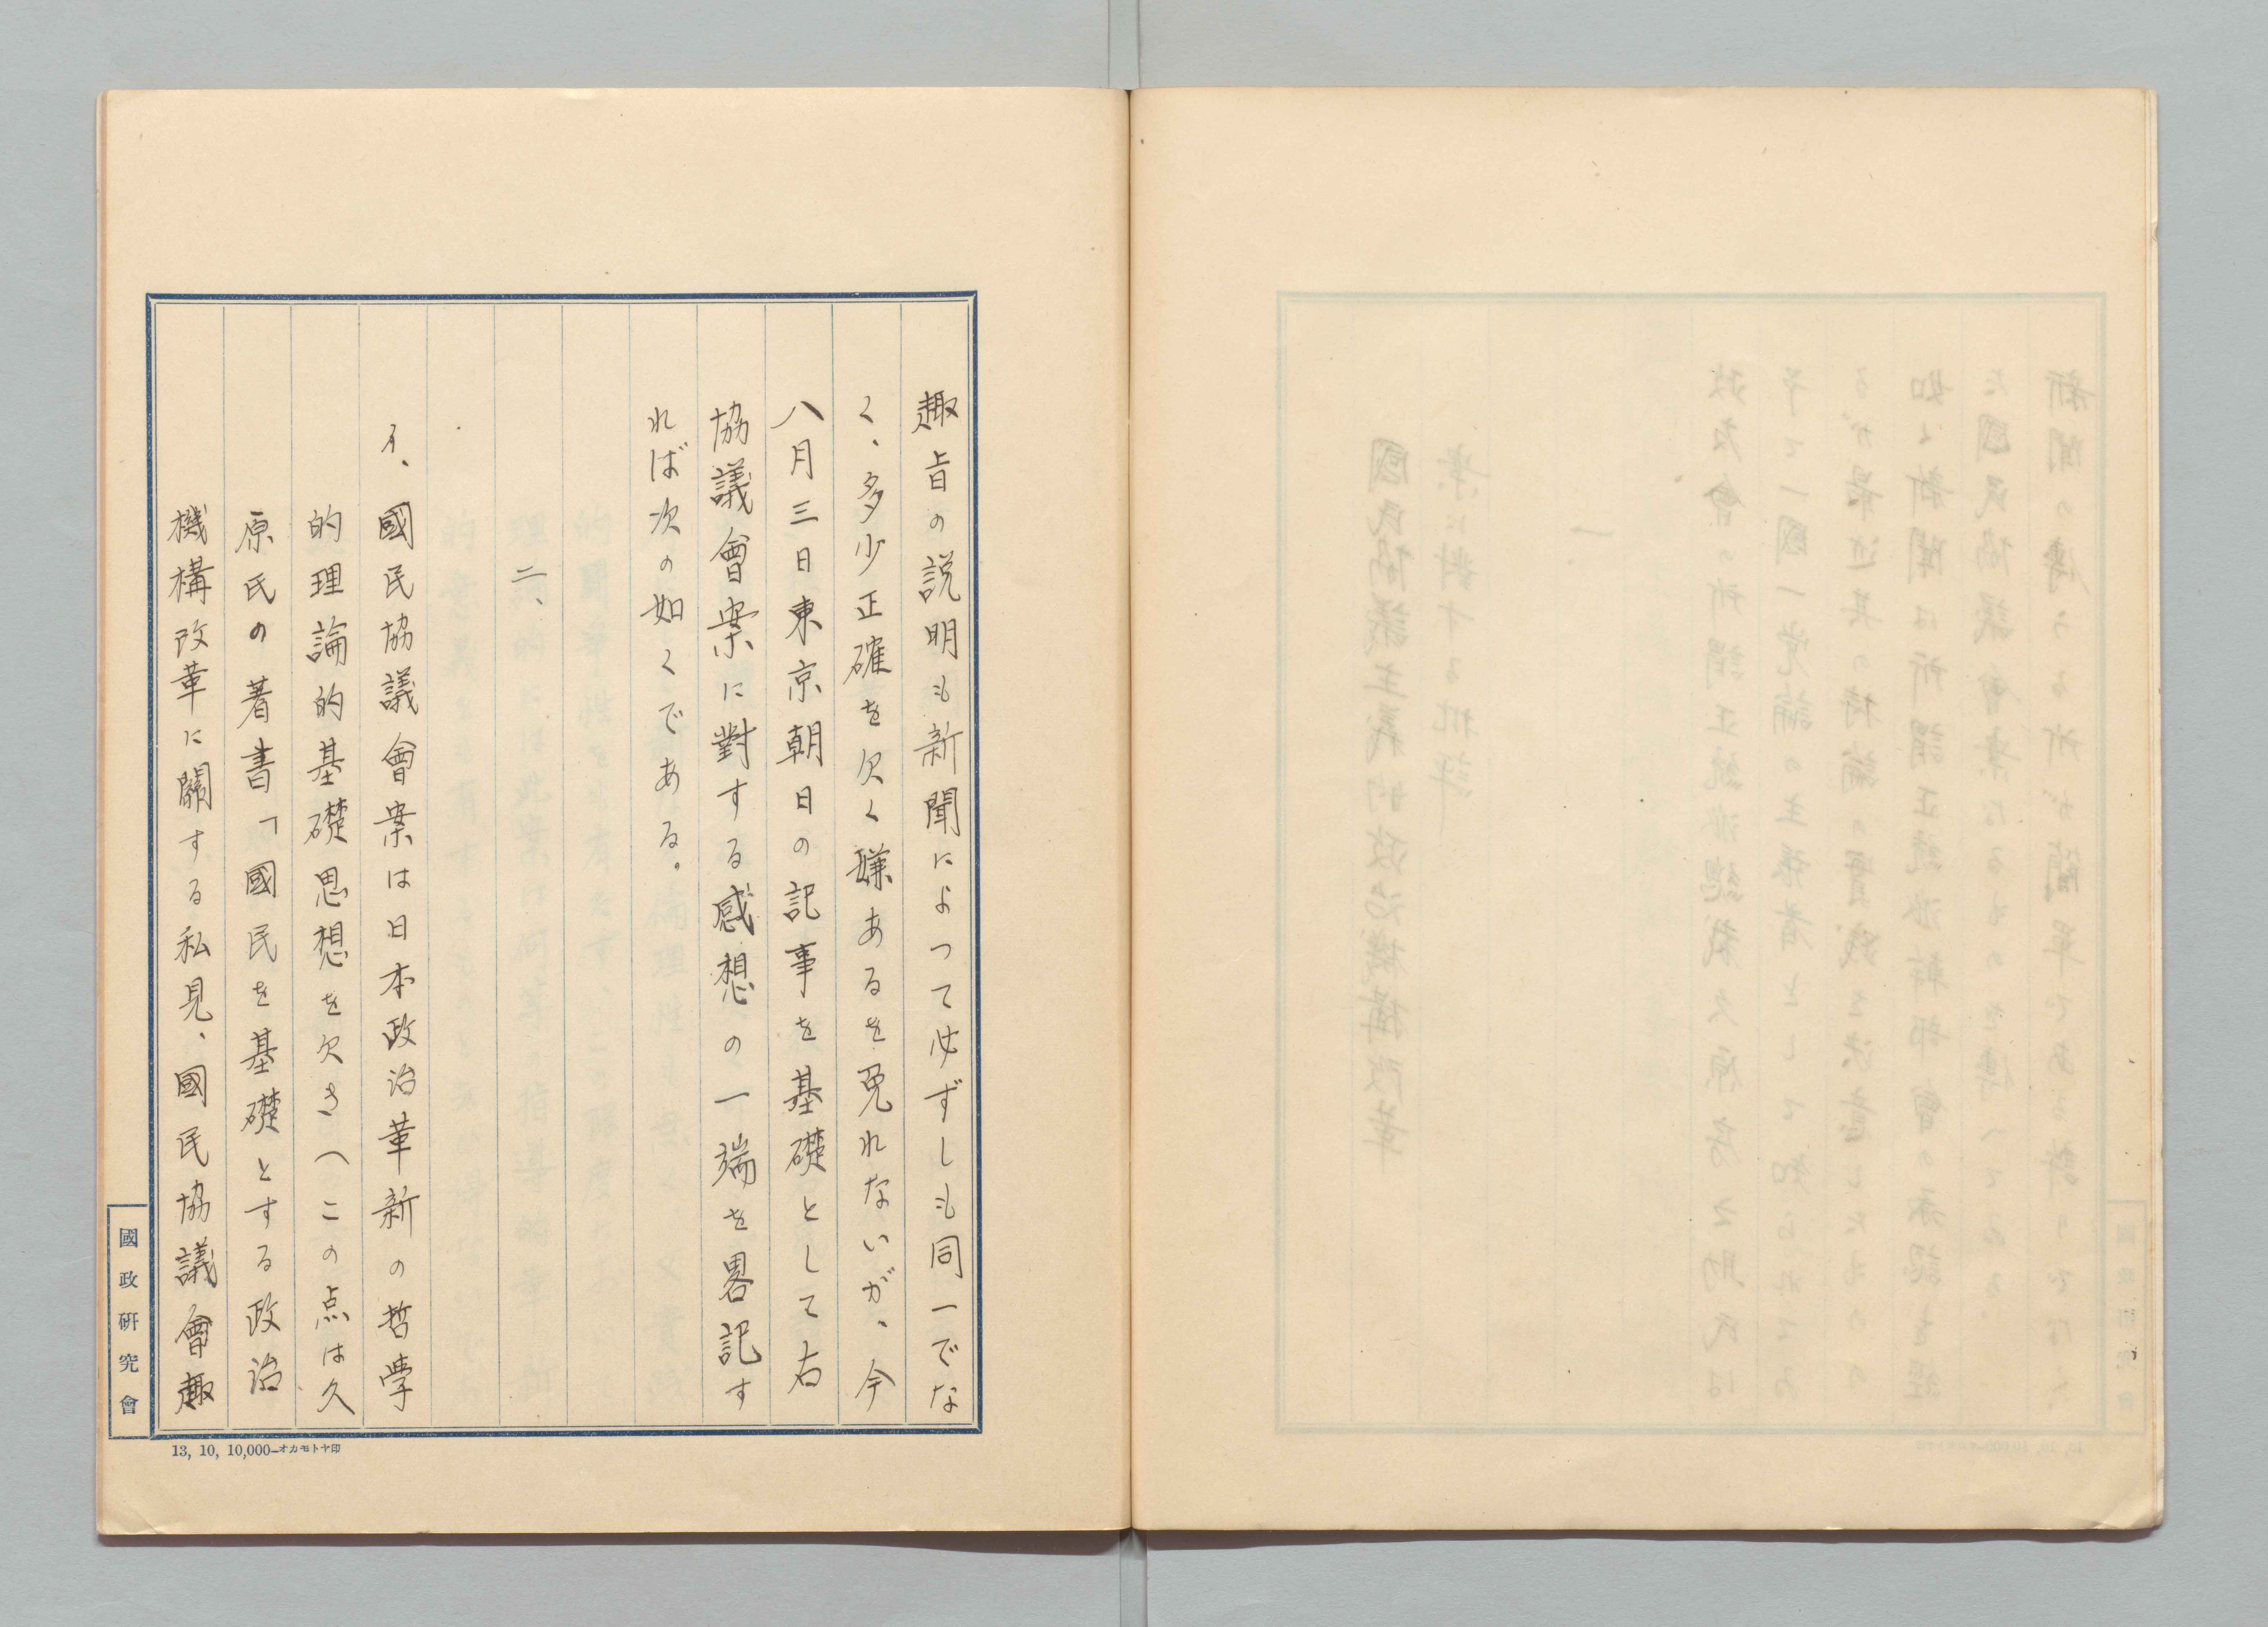 趣旨の説明も新聞によつて必ずしも同一でな
く、多少正確を欠く嫌あるを免れないが、今
八月三日東京朝日の記事を基礎として右
協議會案に對する感想の一端を畧記す
れば次の如くである。
二、
イ、國民協議會案は日本政治革新の哲学
的理論的基礎思想を欠き(この点は久
原氏の著書「國民を基礎とする政治
機構改革に關する私見、國民協議會趣
國政研究會
13, 10, 10,000—オカモトヤ印